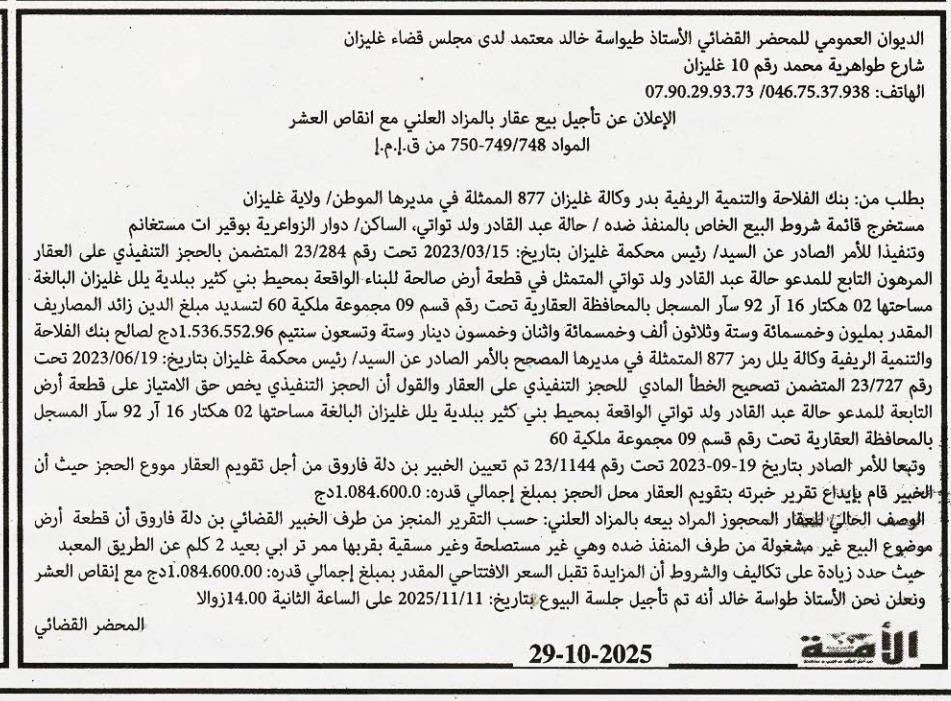 الديوان العمومي للمحضر القضائي الأستاذ طيواسة خالد معتمد لدى مجلس قضاء غليزان
شارع طواهرية محمد رقم 10 غليزان
الهاتف: 046.75.37.938/ 07.90.29.93.73
الإعلان عن تأجيل بيع عقار بالمزاد العلني مع انقاص العشر
المواد 749/748-750 من ق.إ.م.إ
بطلب من: بنك الفلاحة والتنمية الريفية بدر وكالة غليزان 877 الممثلة في مديرها الموطن/ ولاية غليزان
مستخرج قائمة شروط البيع الخاص بالمنفذ ضده / حالة عبد القادر ولد تواتي، الساكن/ دوار الزواعرية بوقير ات مستغانم
وتنفيذا للأمر الصادر عن السيد/ رئيس محكمة غليزان بتاريخ: 2023/03/15 تحت رقم 23/284 المتضمن بالحجز التنفيذي على العقار
المرهون التابع للمدعو حالة عبد القادر ولد تواتي المتمثل في قطعة أرض صالحة للبناء الواقعة بمحيط بني كثير ببلدية يلل غليزان البالغة
مساحتها 02 هكتار 16 آر 92 سآر المسجل بالمحافظة العقارية تحت رقم قسم 09 مجموعة ملكية 60 لتسديد مبلغ الدين زائد المصاريف
المقدر بمليون وخمسمائة وستة وثلاثون ألف وخمسمائة واثنان وخمسون دينار وستة وتسعون سنتيم 1.536.552.96دج لصالح بنك الفلاحة
والتنمية الريفية وكالة يلل رمز 877 المتمثلة في مديرها المصحح بالأمر الصادر عن السيد/ رئيس محكمة غليزان بتاريخ: 2023/06/19 تحت
رقم 23/727 المتضمن تصحيح الخطأ المادي للحجز التنفيذي على العقار والقول أن الحجز التنفيذي يخص حق الامتياز على قطعة أرض
التابعة للمدعو حالة عبد القادر ولد تواتي الواقعة بمحيط بني كثير ببلدية يلل غليزان البالغة مساحتها 02 هكتار 16 آر 92 سآر المسجل
بالمحافظة العقارية تحت رقم قسم 09 مجموعة ملكية 60
وتبعا للأمر الصادر بتاريخ 19-09-2023 تحت رقم 23/1144 تم تعيين الخبير بن دلة فاروق من أجل تقويم العقار مووع الحجز حيث أن
الخبير قام بإيداع تقرير خبرته بتقويم العقار محل الحجز بمبلغ إجمالي قدره: 1.084.600.0دج
الوصف الحالي للعقار المحجوز المراد بيعه بالمزاد العلني: حسب التقرير المنجز من طرف الخبير القضائي بن دلة فاروق أن قطعة أرض
موضوع البيع غير مشغولة من طرف المنفذ ضده وهي غير مستصلحة وغير مسقية بقربها ممر تر ابي بعيد 2 كلم عن الطريق المعبد
حيث حدد زيادة على تكاليف والشروط أن المزايدة تقبل السعر الافتتاحي المقدر بمبلغ إجمالي قدره: 1.084.600.00دج مع إنقاص العشر
ونعلن نحن الأستاذ طواسة خالد أنه تم تأجيل جلسة البيوع بتاريخ: 2025/11/11 على الساعة الثانية 14.00زوالا
المحضر القضائي
الأمة
29-10-2025